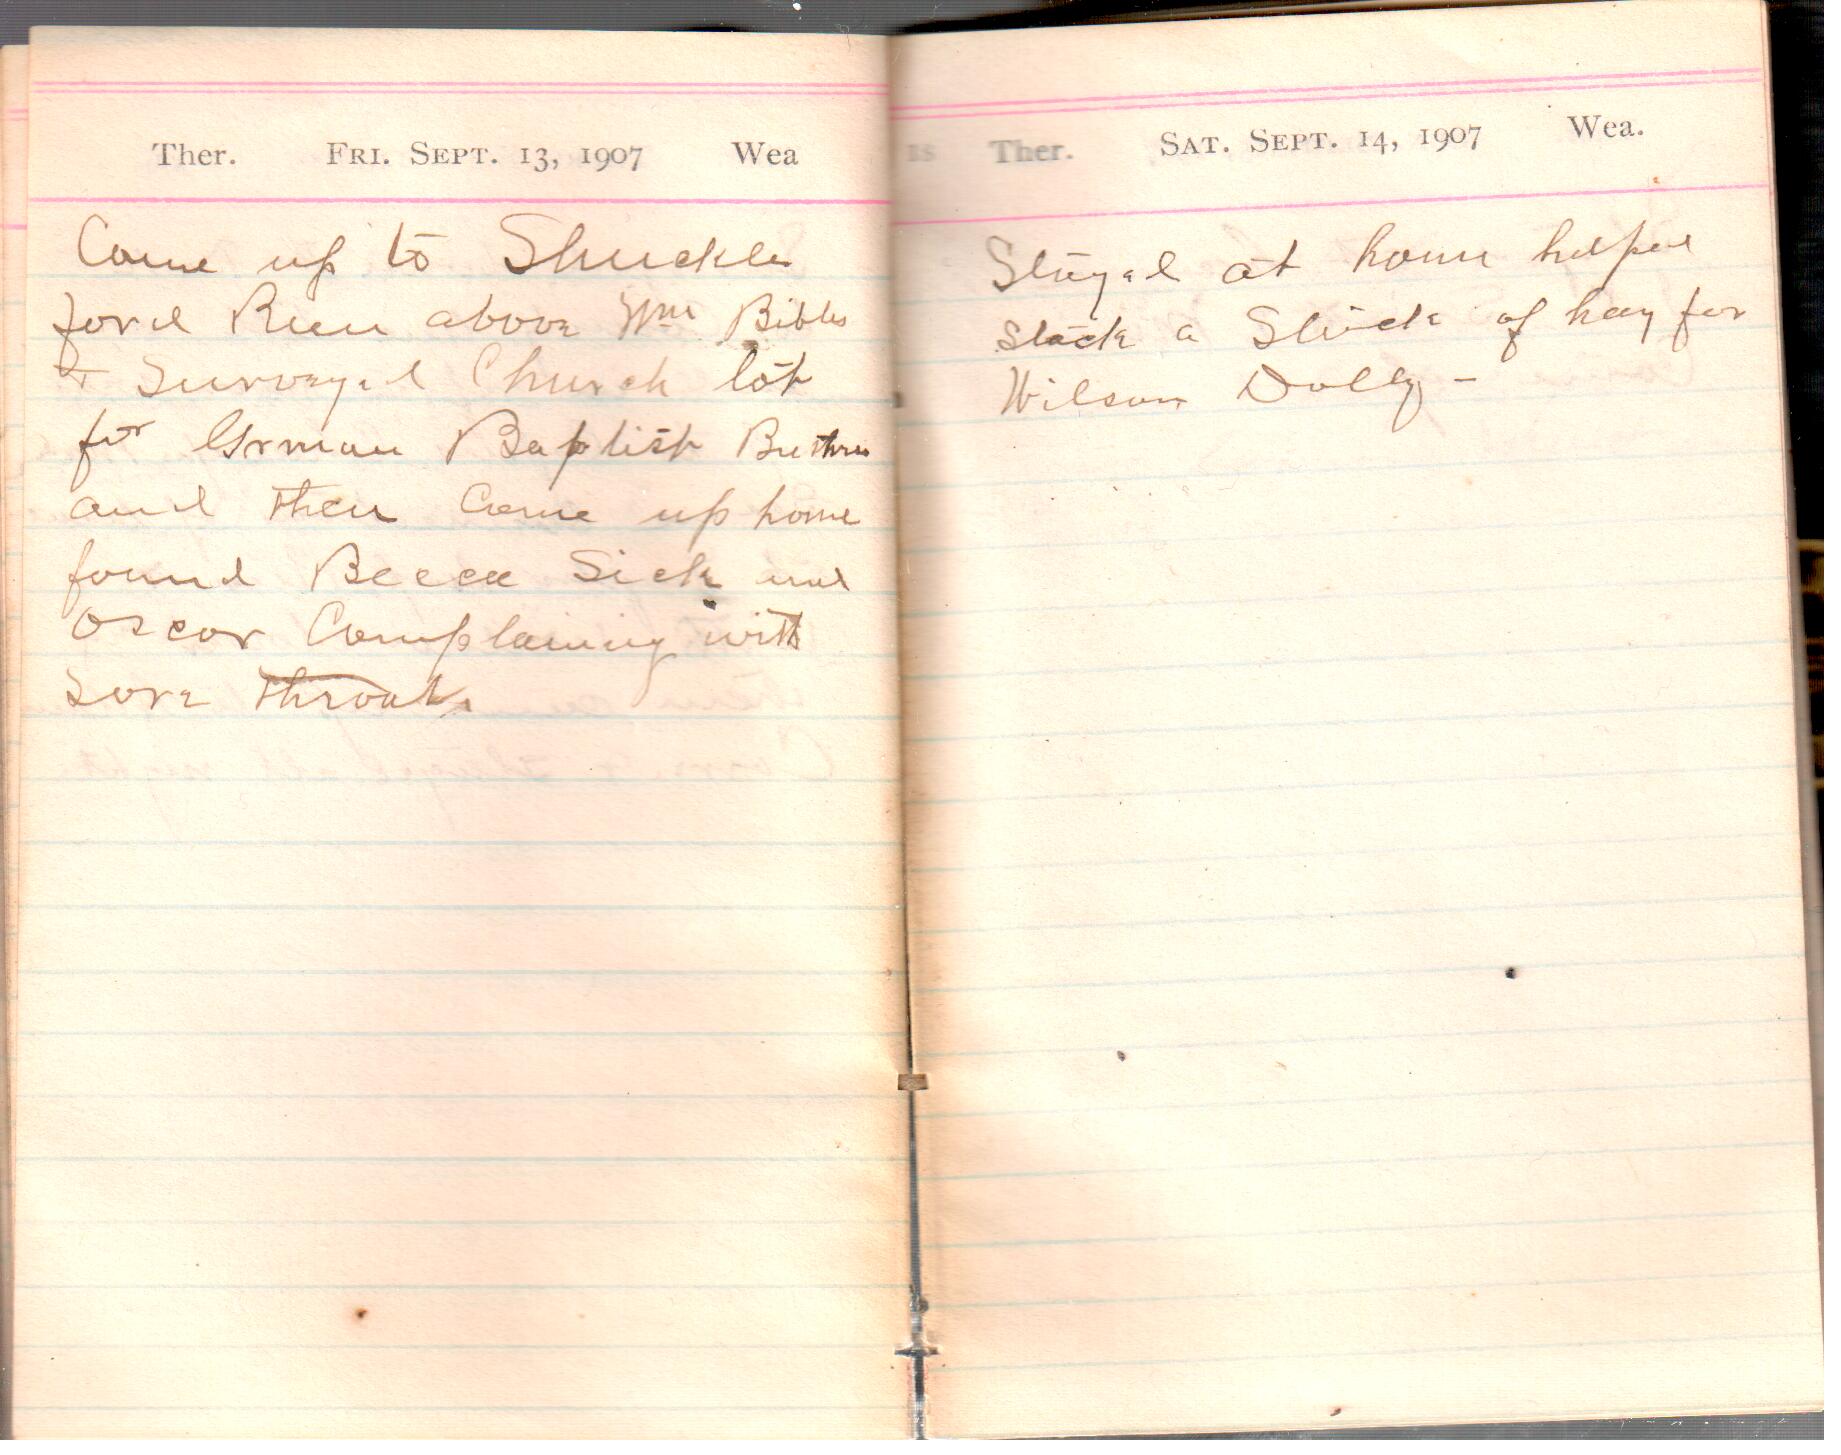 Ther. FRI. SEPT. 13, 1907 Wea
Came up to Shuckle
ford Run above Wm Bibles
& Surveyed Church lot
for German Baptist Brethren
and then Came up home
found Becca Sick and
Oscar Complaining with
Sore throat.
Ther. SAT. SEPT. 14, 1907 Wea.
Stayed at home helped
stack a Stack of hay for
Wilson Dolly -